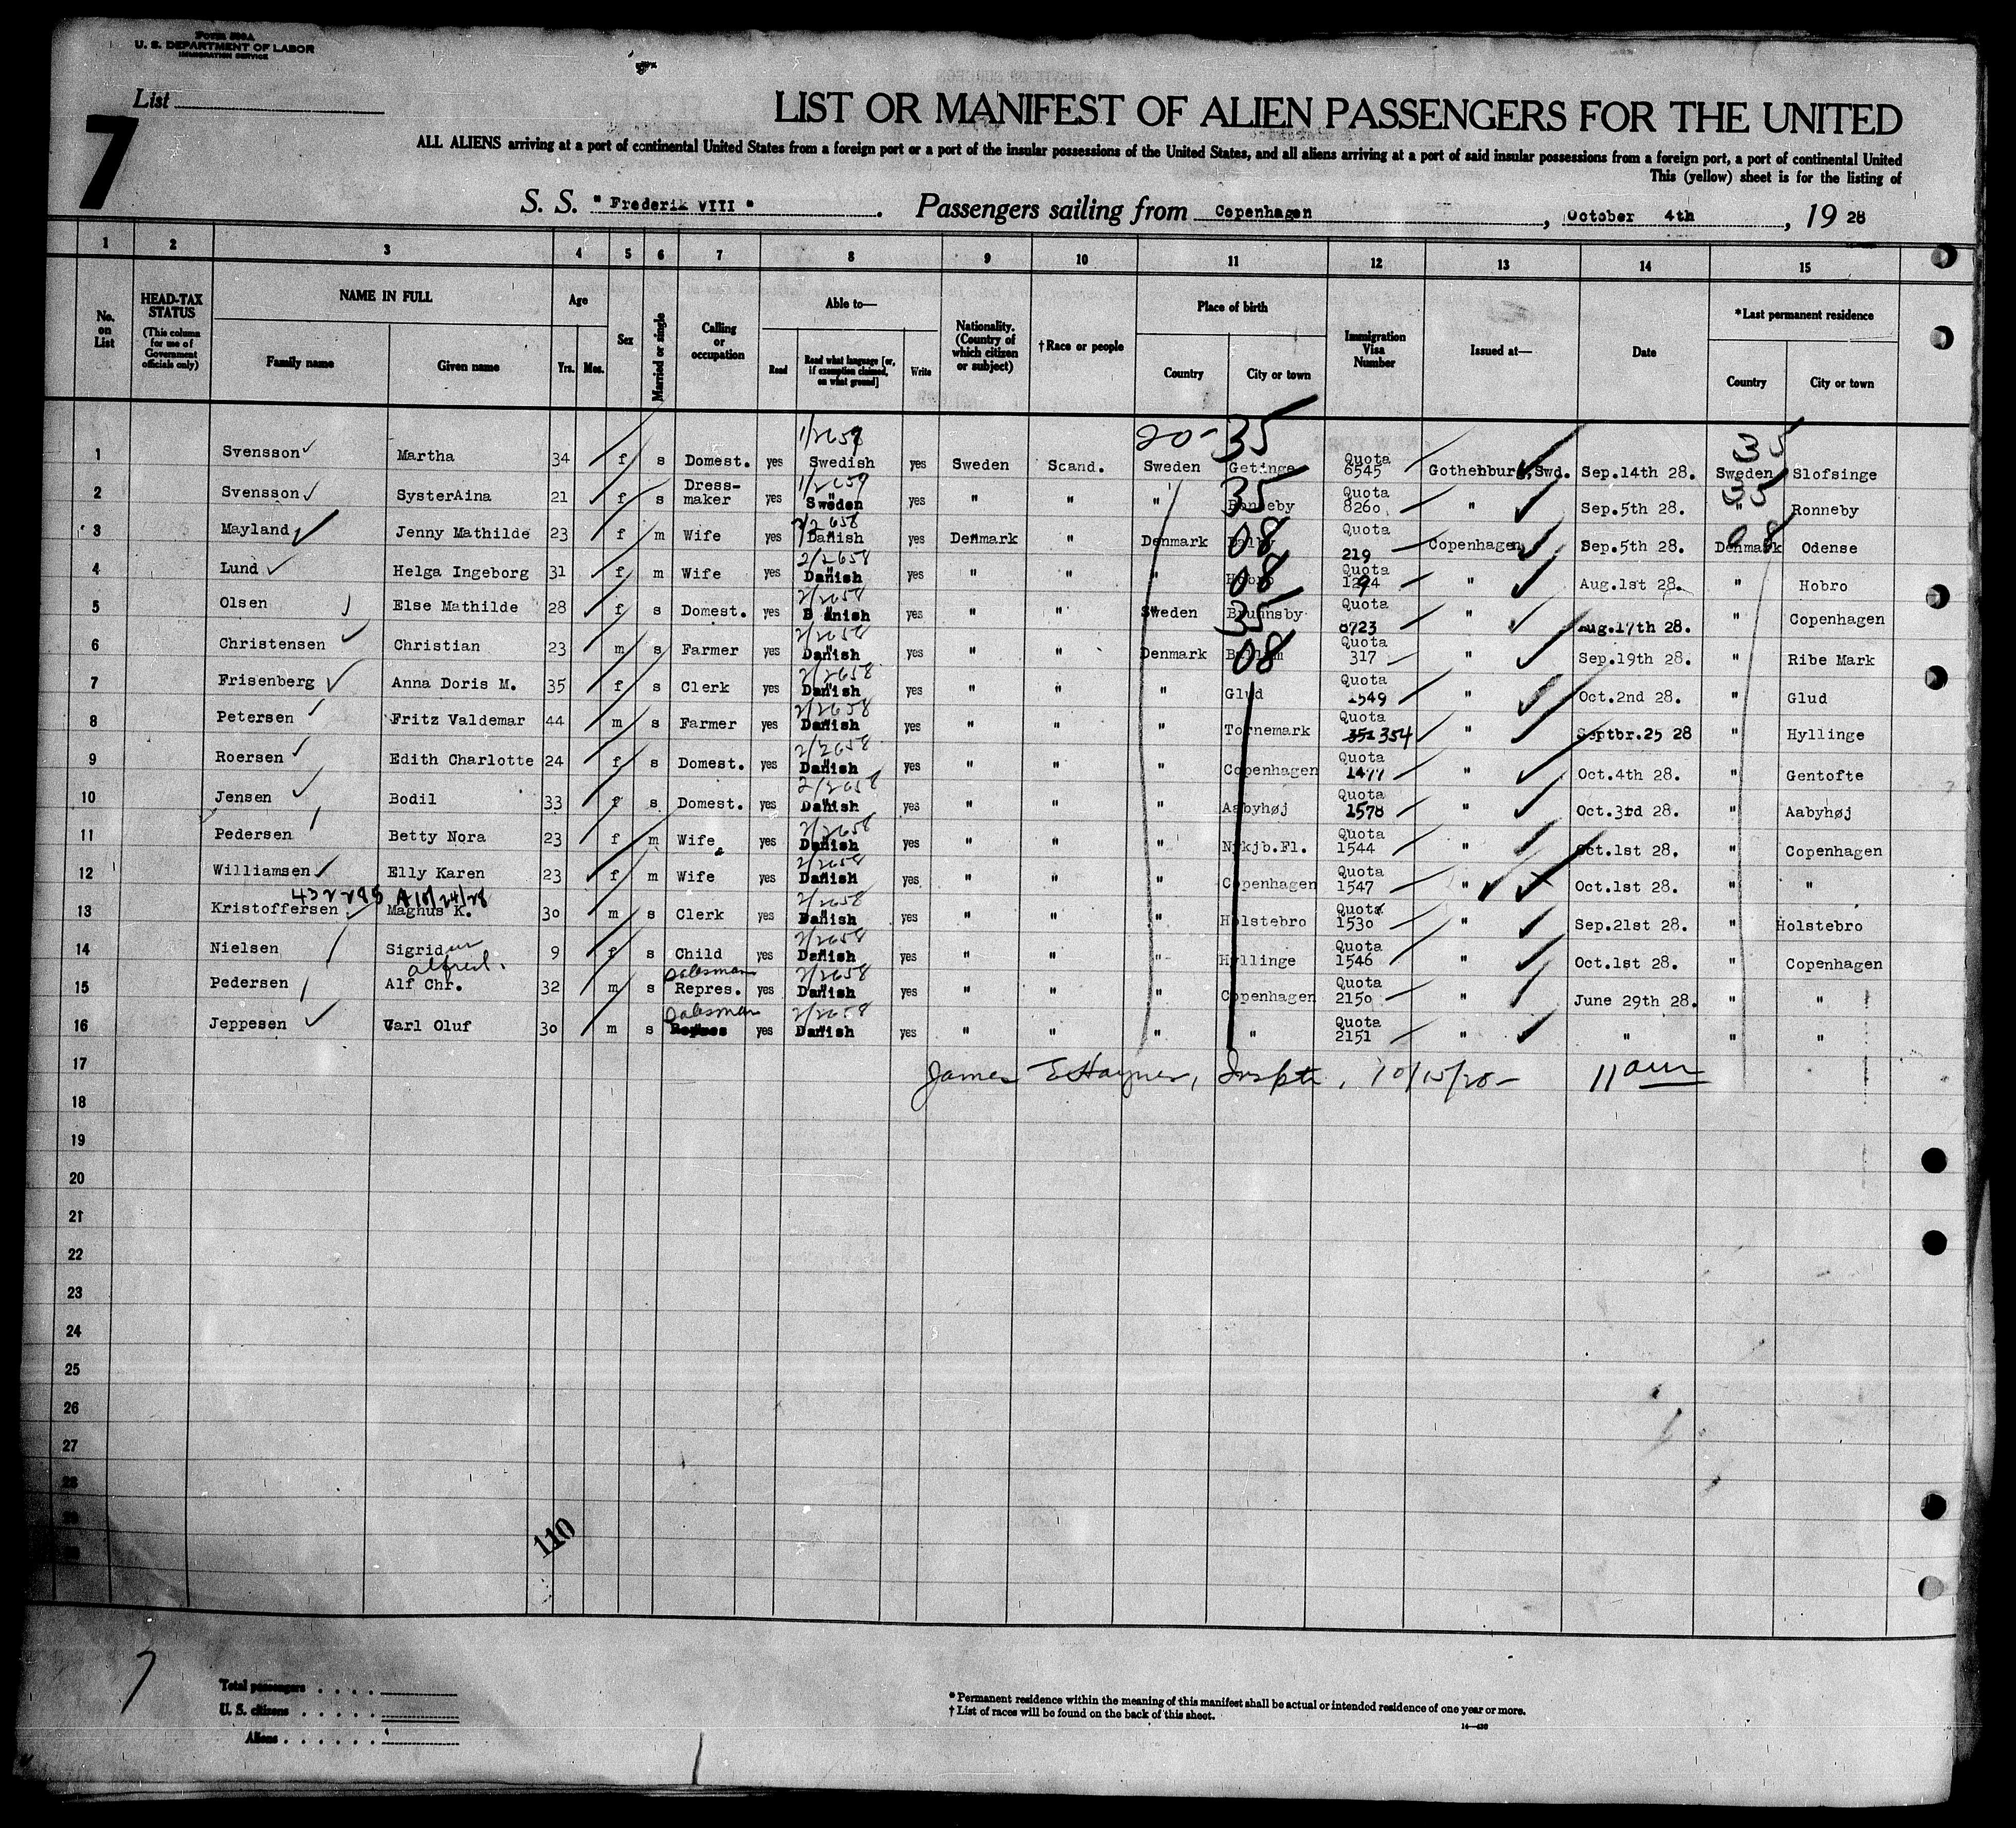 Form 500A
U. S. DEPARTMENT OF LABOR
IMMIGRATION SERVICE
List
7
LIST OR MANIFEST OF ALIEN PASSENGERS FOR THE UNITED
ALL ALIENS arriving at a port of continental United States from a foreign port or a port of the insular possessions of the United States, and all aliens arriving at a port of said insular possessions from a foreign port, a port of continental United
This (yellow) sheet is for the listing of
S. S. "Frederik VIII". Passengers sailing from Copenhagen, October 4th, 19 28
1 2 3 4 5 6 7 8 9 10 11 12 13 14 15
No. on List
HEAD-TAX STATUS (This column for use of Government officials only)
NAME IN FULL
Family name Given name
Age Yrs. Mos.
Sex
Married or single
Calling or occupation
Able to— Read Read what language [or, if exemption claimed, on what ground] Write
Nationality. (Country of which citizen or subject)
†Race or people
Place of birth Country City or town
Immigration Visa Number
Issued at—
Date
*Last permanent residence Country City or town
1/2658 20-35 35
1 Svensson Martha 34 f s Domest. yes Swedish yes Sweden Scand. Sweden Getinge Quota 6545 Gothenburg, Swd. Sep.14th 28. Sweden Slofsinge
1/2659 35 35
2 Svensson SysterAina 21 f s Dress-maker yes Sweden yes " " " Ronneby Quota 8260 " Sep.5th 28. " Ronneby
2/2658 08 08
3 Mayland Jenny Mathilde 23 f m Wife yes Danish yes Denmark " Denmark Quota 219 Copenhagen Sep.5th 28. Denmark Odense
2/2658 08
4 Lund Helga Ingeborg 31 f m Wife yes Danish yes " " " Hobro Quota " Aug.1st 28. " Hobro
2/2658 35
5 Olsen Else Mathilde 28 f s Domest. yes D anish yes " " Sweden Quota 8723 " Aug.17th 28. " Copenhagen
2/2658 08
6 Christensen Christian 23 m s Farmer yes Danish yes " " Denmark Quota 317 " Sep.19th 28. " Ribe Mark
2/2658
7 Frisenberg Anna Doris M. 35 f s Clerk yes Danish yes " " " Glud Quota 1549 " Oct.2nd 28. " Glud
2/2658
8 Petersen Fritz Valdemar 44 m s Farmer yes Danish yes " " " Tornemark Quota 354 " Septbr.25 28 " Hyllinge
2/2658
9 Roersen Edith Charlotte 24 f s Domest. yes Danish yes " " " Copenhagen Quota 1477 " Oct.4th 28. " Gentofte
2/2658
10 Jensen Bodil 33 f s Domest. yes Danish yes " " " Aabyhøj Quota 1578 " Oct.3rd 28. " Aabyhøj
2/2658
11 Pedersen Betty Nora 23 f m Wife yes Danish yes " " " Nykjb.Fl. Quota 1544 " Oct.1st 28. " Copenhagen
2/2658
12 Williamsen Elly Karen 23 f m Wife yes Danish yes " " " Copenhagen Quota 1547 " Oct.1st 28. " "
432285 A10/24/28 2/2658
13 Kristoffersen Magnus K. 30 m s Clerk yes Danish yes " " " Holstebro Quota 1530 " Sep.21st 28. " Holstebro
2/2658
14 Nielsen Sigrid 9 f s Child yes Danish yes " " " Hyllinge Quota 1546 " Oct.1st 28. " Copenhagen
alfred. Salesman 2/2658
15 Pedersen Alf Chr. 32 m s Repres. yes Danish yes " " " Copenhagen Quota 2150 " June 29th 28. " "
Salesman 2/2658
16 Jeppesen Carl Oluf 30 m s Repres yes Danish yes " " " " Quota 2151 " " " "
17 James E Haynes, Insptr, 10/15/28- 11 am
18
19
20
21
22
23
24
25
26
27
28
29
30
110
7
Total passengers
U. S. citizens
Aliens
* Permanent residence within the meaning of this manifest shall be actual or intended residence of one year or more.
† List of races will be found on the back of this sheet.
14—430